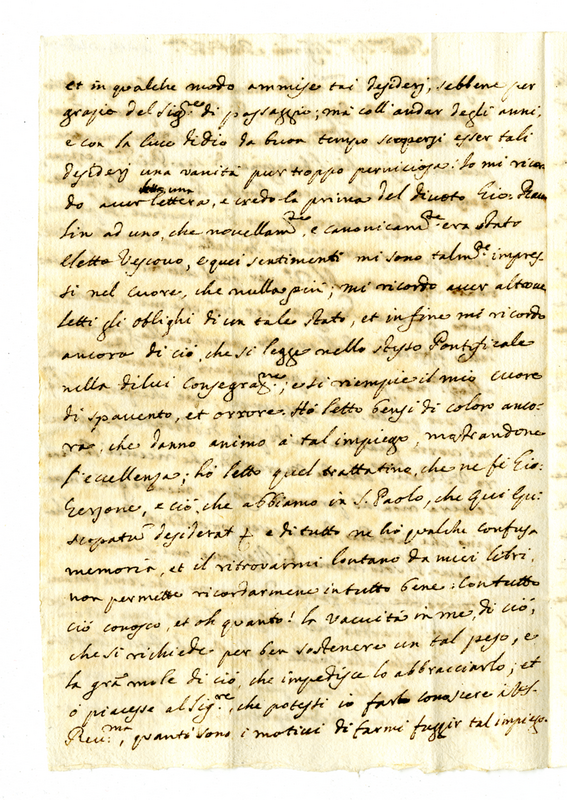 et in qualche modo ammise tai desiderj, sebbene per
grazia del Sig.re di passaggio; mà coll'andar degli anni,
e con la luce di dio da buon tempo scopersi esser tali
desiderj una vanità pur troppo perniciosa: Io mi ricor
do aver letto una lettera, e credo la prima del divoto Gio:
ad uno, che novellam.te, e canonicam.te era stato
eletto Vescovo, e quei sentimenti mi sono talm.te impres-
si nel cuore, che nulla più; mi ricordo aver altrove
letti gli oblighi di un tale stato, et in fine mi ricordo
ancora di ciò, che si legge nello stesso Pontificale
nella di lui Consegraz.ne; e si riempie il mio cuore
di spavento, et orrore. Hò letto bensi di coloro anco-
ra, che danno animo à tal impiego, mostrandone
l'eccellenza; hò letto quel trattatino, che ne fè Gio:
Gersone, e ciò, che abbiamo in S. Paolo, che Qui Epi-
scopatũ desiderat e di tutto ne hò qualche confusa
memoria, et il ritrovarmi lontano da miei libri
non permette ricordarmene in tutto bene: Con tutto
ciò conosco, et oh quanto! la vacuità in me, di ciò,
che si richiede per ben sostenere un tal peso, e
la grã mole di ciò, che impedisce lo abbracciarlo; et
ò piacesse al Sig.re, che potessi io farle conoscere à V.S.
Rev.ma, quanti sono i motivi di farmi fuggir tal impiego.